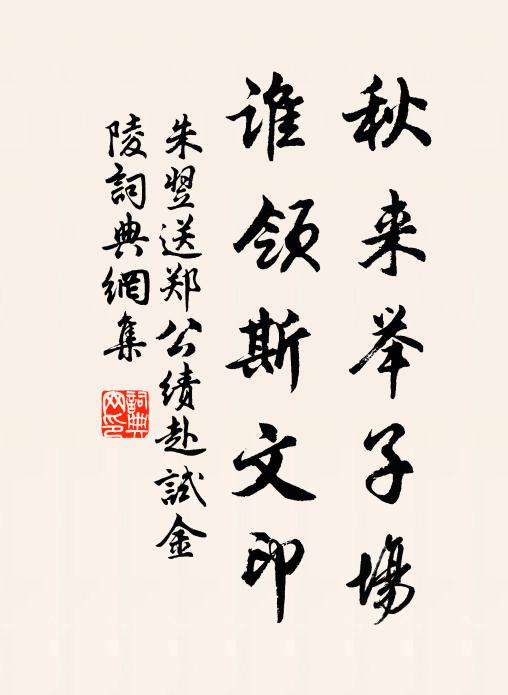 秋来举子場
谁领斯文印
朱翌送郑公绩赴試金
陵詞典網集
詞典
网印